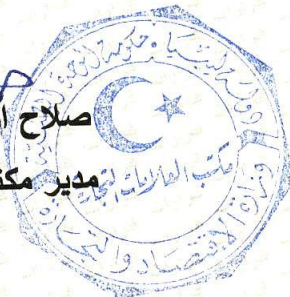 صلاح ا
مدير مكت
دولة ليبيا - حكومة الوحدة الوطنية
مكتب العلاقات التجارية
وزارة الاقتصاد والتجارة